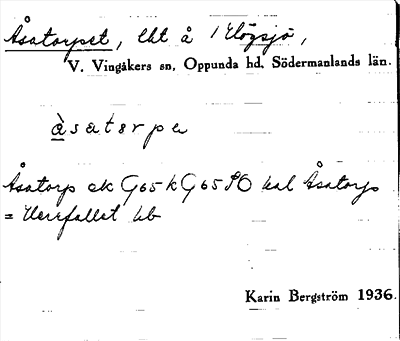 Åsatorpet, lht å 1 Högsjö,
V. Vingåkers sn, Oppunda hd, Södermanlands län.
àsatɐrpe
Åsatorp ek G65 k G65 SO kal Åsatorp
= Herrfallet hb
Karin Bergström 1936.